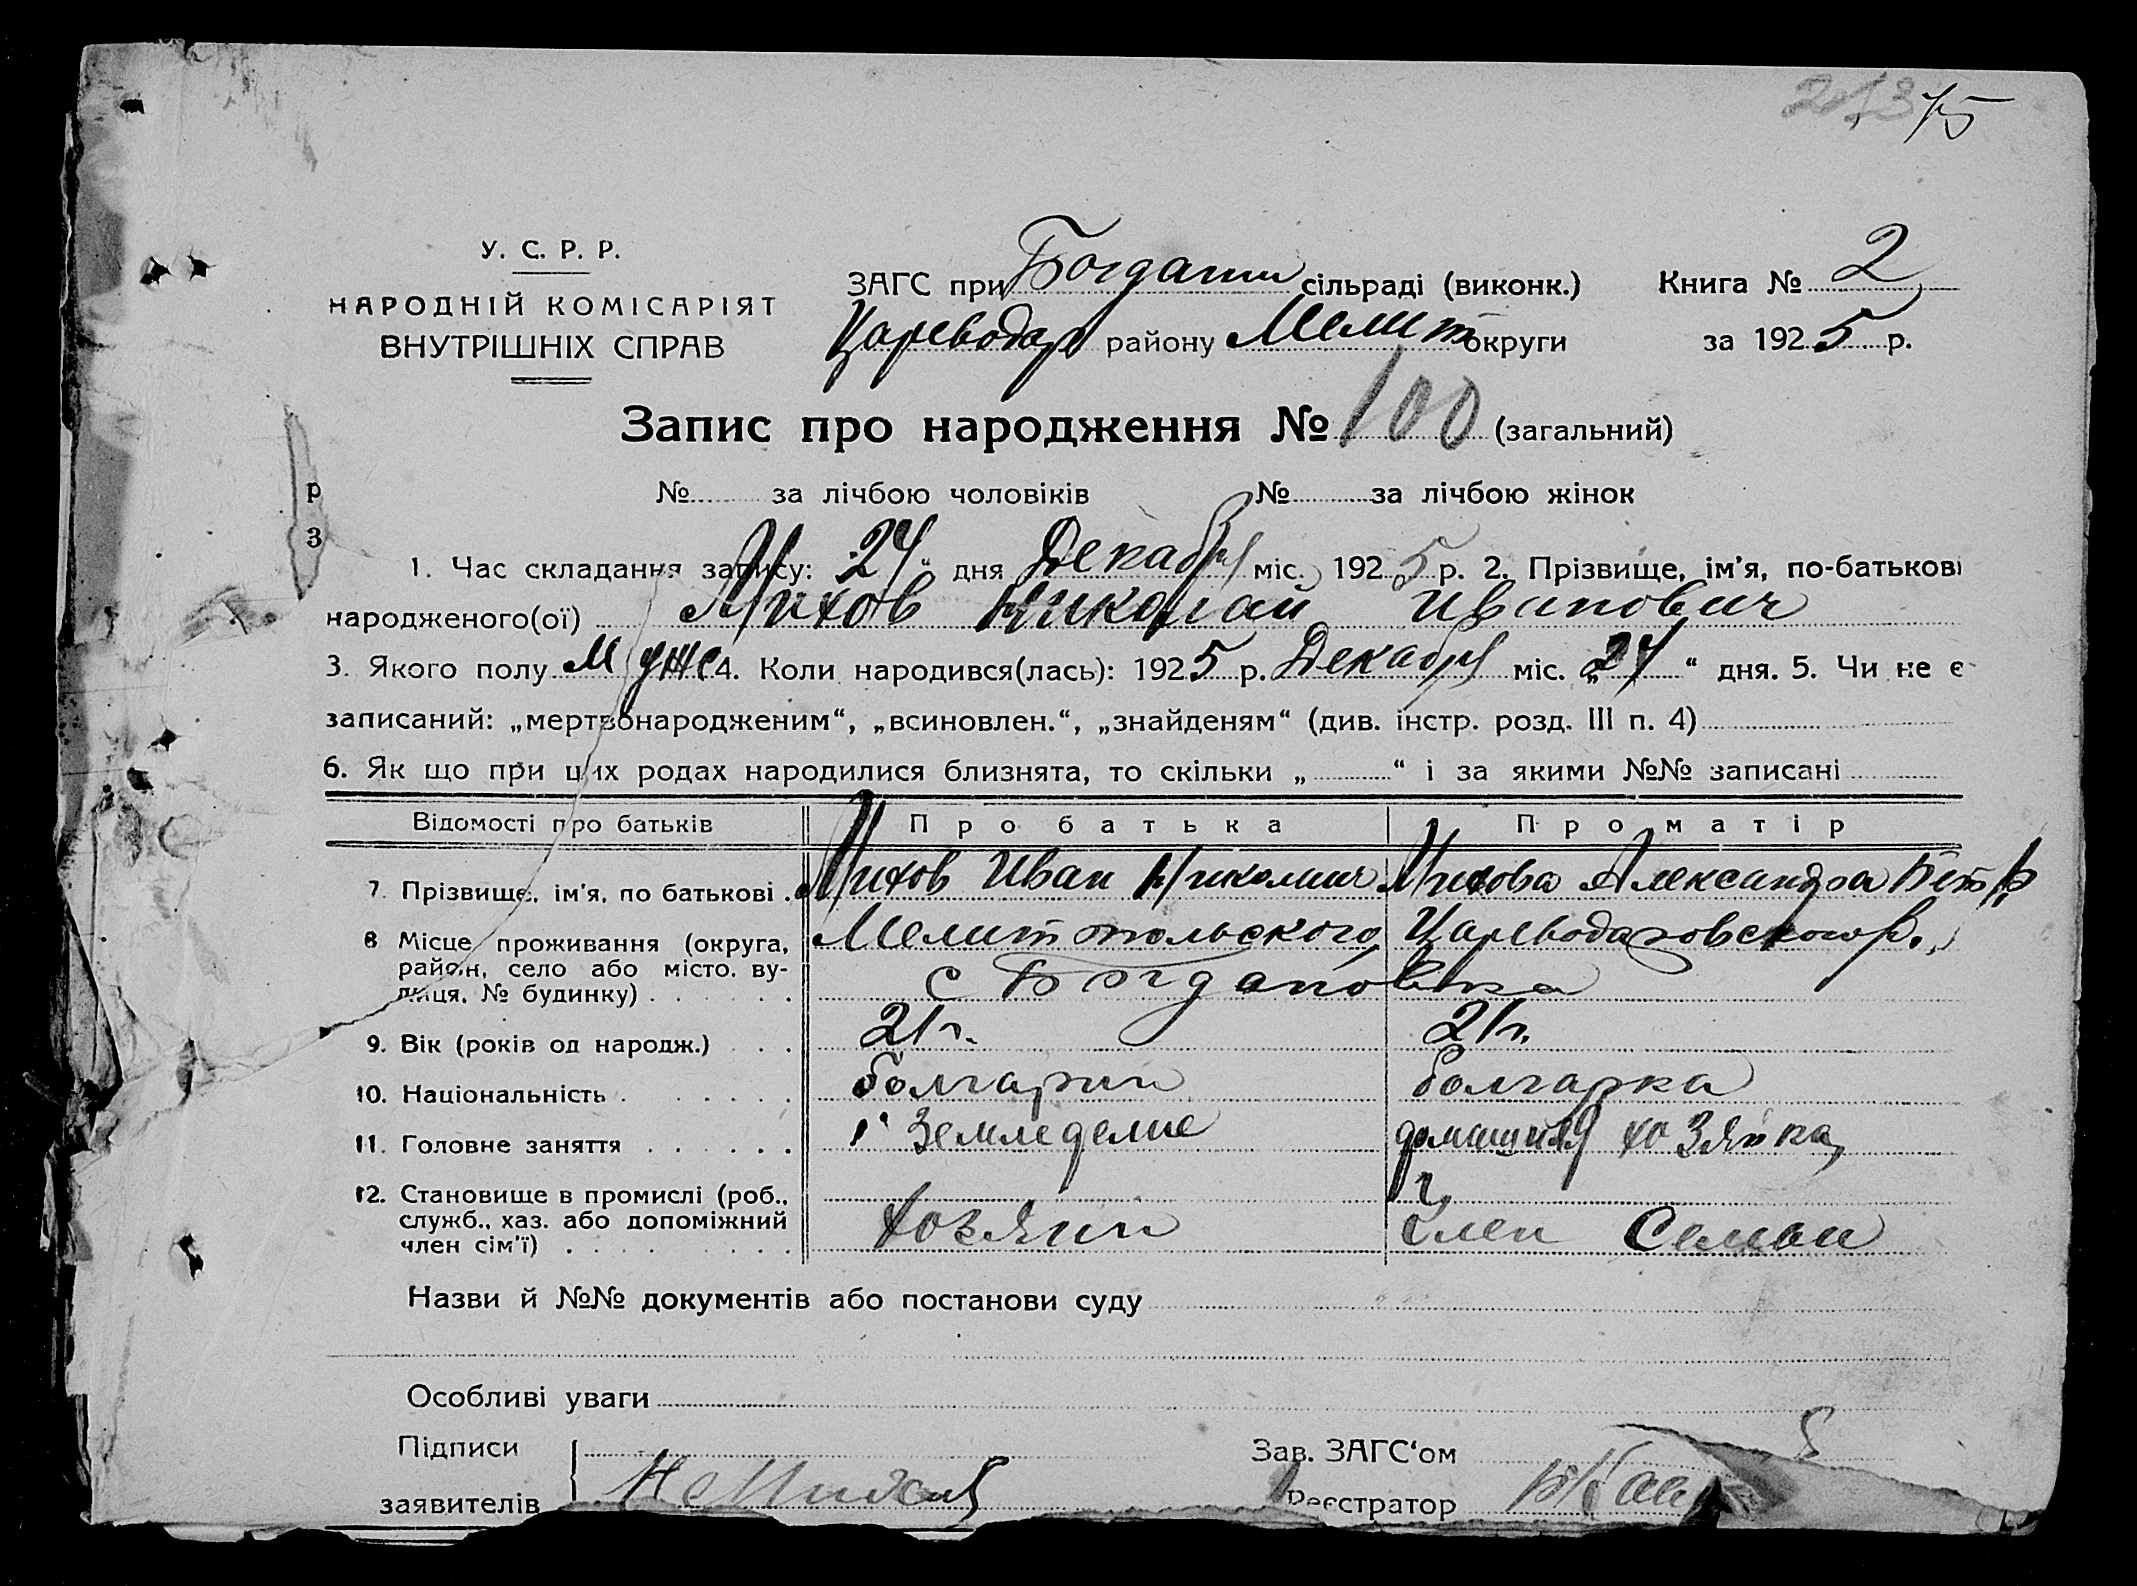 213 75
У. С. Р. Р.
НАРОДНІЙ КОМІСАРІЯТ
ВНУТРІШНІХ СПРАВ
ЗАГС при Богдан сільраді (виконк.) Книга № 2
Цареводар району Мелит округи за 1925 р.
Запис про народження № 100 (загальний)
№ за лічбою чоловіків № за лічбою жінок
р
з
1. Час складання запису: 24 " дня Декабря міс. 1925 р. 2. Прізвище, ім'я, по-батькові
народженого(ої) Михов Николай Иванович
3. Якого полу Муже 4. Коли народився(лась): 1925 р. Декабря міс. „24 " дня. 5. Чи не є
записаний: „мертвонародженим“, „всиновлен.“, „знайденям“ (див. інстр. розд. III п. 4)
6. Як що при цих родах народилися близнята, то скільки „ “ і за якими №№ записані
Відомості про батьків Про батька Про матір
7. Прізвище, ім'я, по батькові Михов Иван Михова Александра Петр
8 Місце проживання (округа, Мелитопольского Цареводаровского р.
район, село або місто, ву-
лиця, № будинку) с Богдановка
9. Вік (років од народж.) 21 г. 21 г.
10. Національність болгарин болгарка
11. Головне заняття Земледелие домашняя хозяйка
12. Становище в промислі (роб.,
служб., хаз. або допоміжний
член сім'ї) хозяин Член Семьи
Назви й №№ документів або постанови суду
Особливі уваги
Підписи Зав. ЗАГС'ом
заявителів Реєстратор